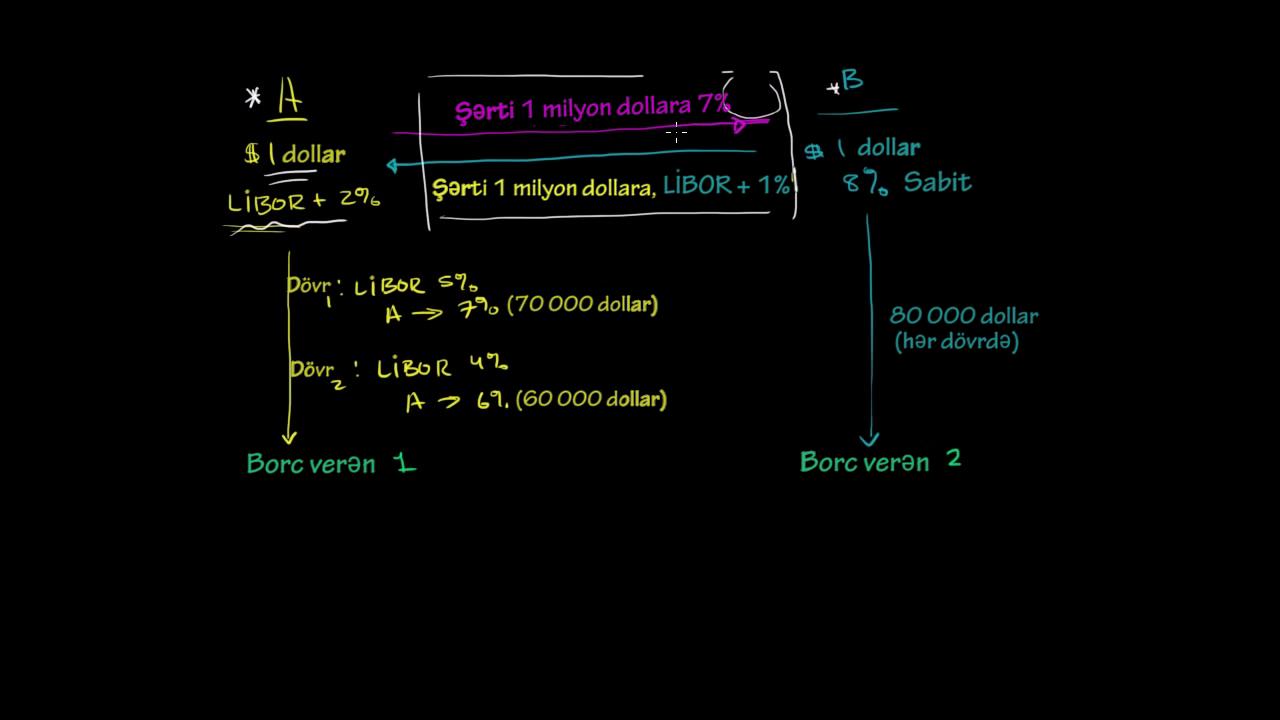 * A
$ 1 dollar
LİBOR + 2%
Şərti 1 milyon dollara 7%
Şərti 1 milyon dollara, LİBOR + 1%
* B
$ 1 dollar
8% Sabit
Dövr 1 : LİBOR 5%
A → 7% (70 000 dollar)
Dövr 2 : LİBOR 4%
A → 6% (60 000 dollar)
80 000 dollar
(hər dövrdə)
Borc verən 1
Borc verən 2